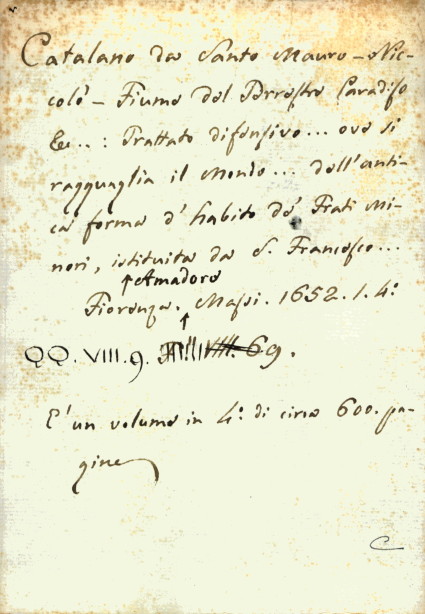 Catalano da Santo Mauro - Nic-
colò - Fiume del Terrestre Paradiso
&c..: Trattato difensivo... ove si
ragguaglia il Mondo... dell'anti-
ca forma d'habito de' Frati Mi-
nori, istituita da S. Francesco...
Amadore
Fiorenza. Massi. 1652. 1. 4:
QQ. VIII. 9. 69.
E' un volume in 4: di circa 600. pa-
gine
C